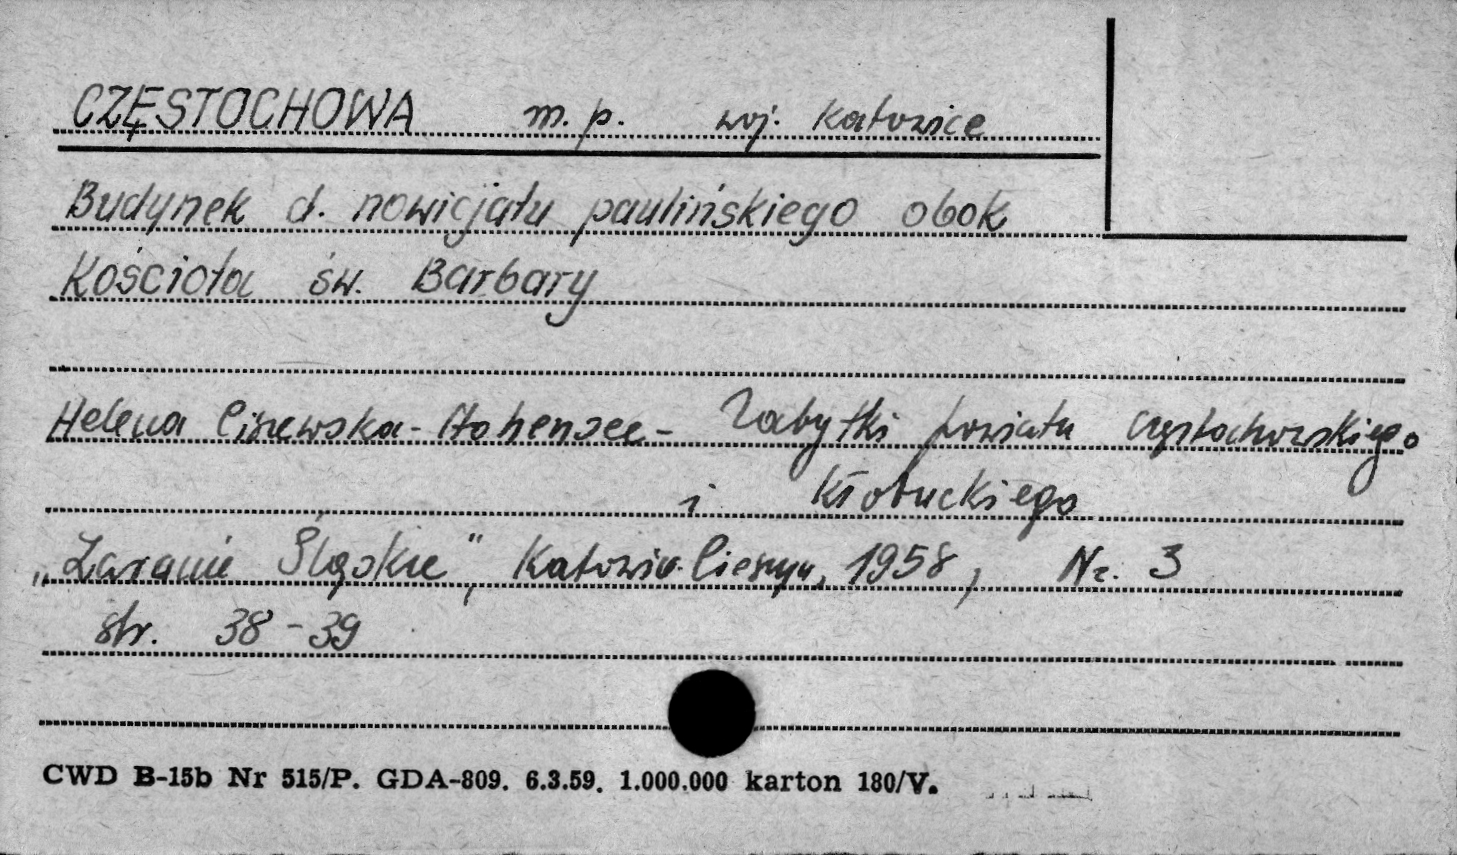 CZĘSTOCHOWA m.p. woj. Katowice
Budynek d. nowicjatu paulińskiego obok
Kościoła św. Barbary
Helena Ciszewska-Hohensee - Zabytki powiatu częstochowskiego
i Kłobuckiego
„Zaranie Śląskie", Katowice-Cieszyn, 1958, Nr. 3
str. 38-39
CWD B-15b Nr 515/P. GDA-809. 6.3.59. 1.000.000 karton 180/V.